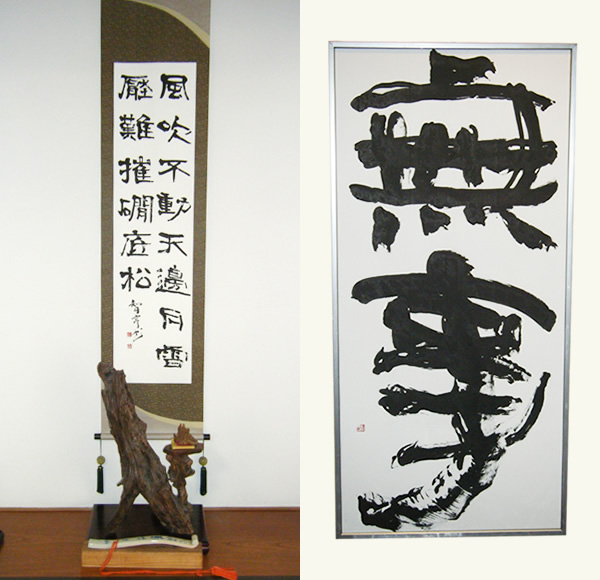 風吹不動天邊月雪
壓難摧磵底松
無事